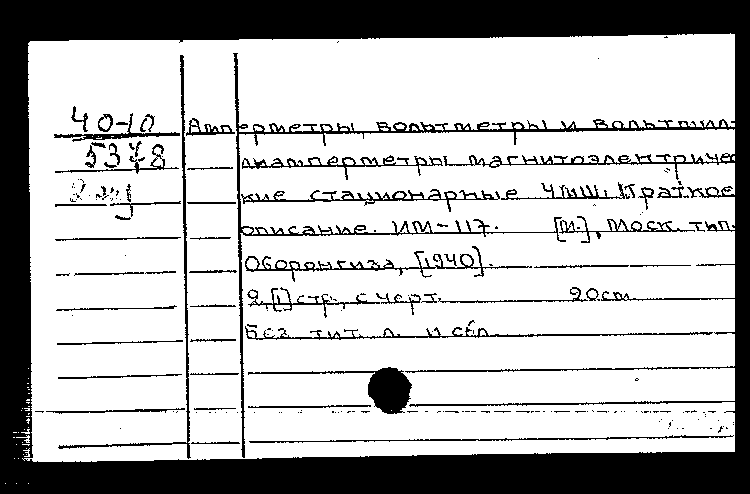 40-10
5378
2 экз
Амперметры, вольтметры и вольтмил-
лиамперметры магнитоэлектричес
кие стационарные ЧМШ. Краткое
описание. ИМ-117. [М.], Моск. тип.
Оборонгиза, [1940].
2, [1] стр., с черт. 20 см.
Без тит. л. и обл.